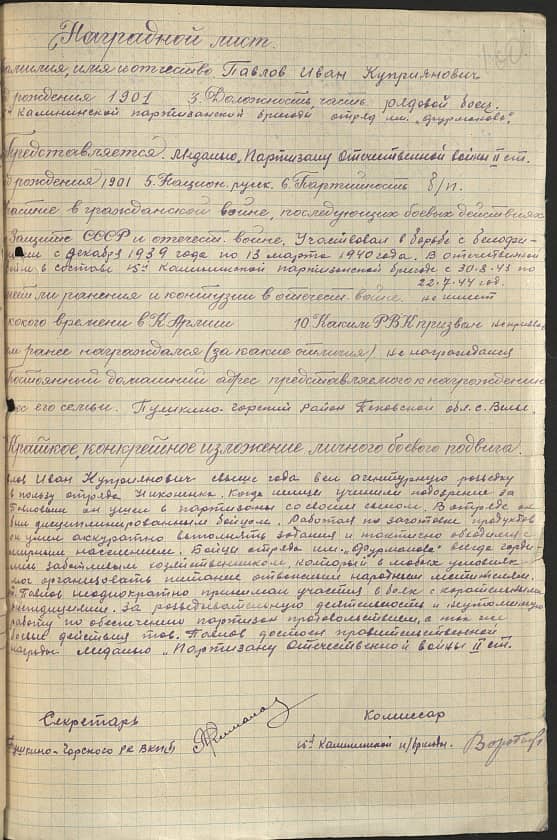 Наградной лист.
Фамилия, имя и отчество Павлов Иван Куприянович
рождения 1901 3. Должность, часть рядовой боец
Калининской партизанской бригады отряд им. „Фурманова".
Представляется. Медалью „Партизану Отечественной войны II ст.
рождения 1901 5. Национ. русск. 6. Партийность б/п.
Участие в гражданской войне, последующих боевых действиях
Защите СССР и отечеств. войне. Участвовал в борьбе с белофи-
с декабря 1939 года по 13 марта 1940 года. В отечественной
в составе 15й Калининской партизанской бригаде с 30-8-43 по
22-7-44 год.
ли ранения и контузии в отечеств. войне. не имеет
какого времени в К Армии 10. Каким РВК призван
ранее награждался (за какие отличия) не награждался
Постоянный домашний адрес представляемого к награждению
его семьи. Пушкино-Горский район Псковской обл. с.
Краткое, конкретное изложение личного боевого подвига.
Иван Куприянович свыше года вел агентурную разведку
в пользу отряда Никоненка. Когда немцы учинили подозрение за
он ушел в партизаны со своим сыном. В отряде он
был дисциплинированным бойцом. Работая по заготовке продуктов
он умел аккуратно выполнять задания и тактично обходился с
мирным населением. Бойцы отряда им. „Фурманова" всегда горди-
лись заботливым хозяйственником, который в любых условиях
мог организовать питание отважным народным мстителям.
Павлов неоднократно принимал участия в боях с карательными
экспедициями. За разведывательную деятельность и неутомимую
работу по обеспечению партизан продовольствием, а так же
боевые действия тов. Павлов достоин правительственной
награды медалью „Партизану Отечественной войны II ст.
Секретарь Комиссар
Пушкино-Горского РК ВКП(б) 15й Калининской п/бригады.